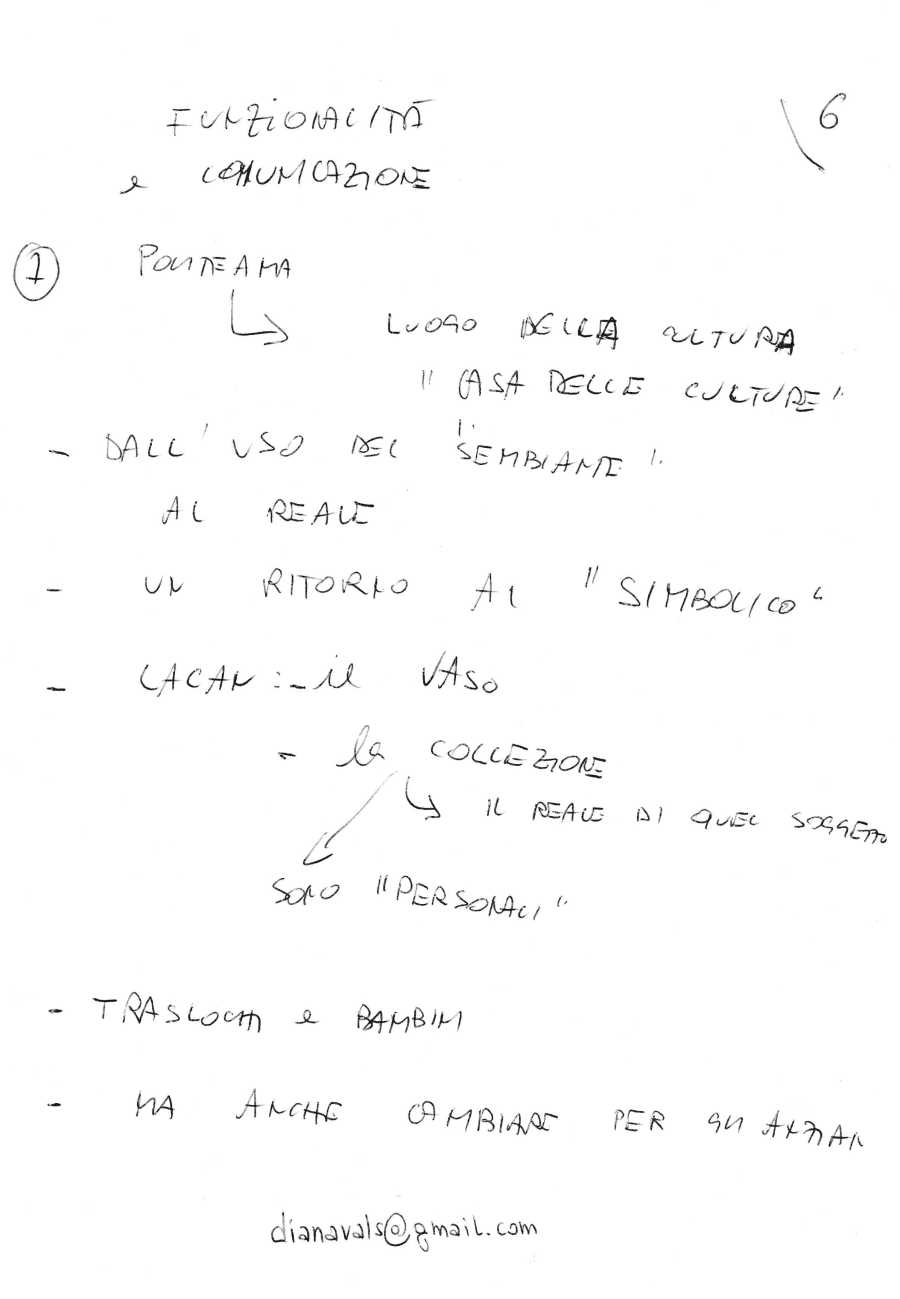 FUNZIONALITÀ
6
e COMUNICAZIONE
1 POLITEAMA
LUOGO DELLA CULTURA
"CASA DELLE CULTURE"
- DALL'USO DEL "SEMBIANTE"
AL REALE
- UN RITORNO AL "SIMBOLICO"
- LACAN: - il VASO
- la COLLEZIONE
IL REALE DI QUEL SOGGETTO
SONO "PERSONALI"
- TRASLOCHI e BAMBINI
- MA ANCHE CAMBIARE PER GLI ANZIANI
dianavals@gmail.com